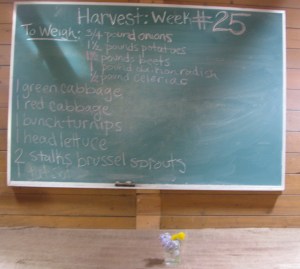 Harvest: Week #25
To Weigh: 3/4 pound onions
1 1/2 pounds potatoes
pounds beets
1 pound radish
1/2 pound celeriac
1 green cabbage
1 red cabbage
1 bunch turnips
1 head lettuce
2 stalks brussel sprouts